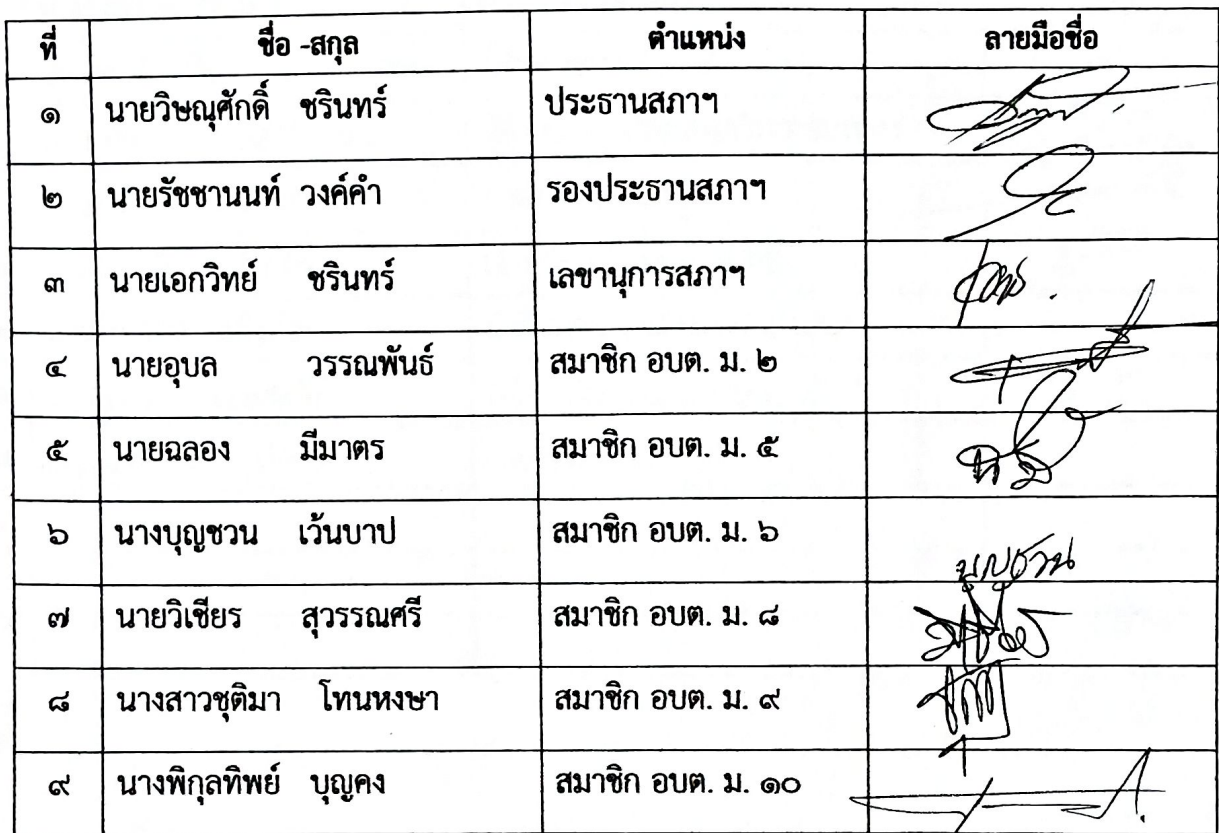 ที่ ชื่อ -สกุล ตำแหน่ง ลายมือชื่อ
๑ นายวิษณุศักดิ์ ชรินทร์ ประธานสภาฯ
๒ นายรัชชานนท์ วงค์คำ รองประธานสภาฯ
๓ นายเอกวิทย์ ชรินทร์ เลขานุการสภาฯ
๔ นายอุบล วรรณพันธ์ สมาชิก อบต. ม. ๒
๕ นายฉลอง มีมาตร สมาชิก อบต. ม. ๕
๖ นางบุญชวน เว้นบาป สมาชิก อบต. ม. ๖ บุญชวน
๗ นายวิเชียร สุวรรณศรี สมาชิก อบต. ม. ๘
๘ นางสาวชุติมา โทนหงษา สมาชิก อบต. ม. ๙
๙ นางพิกุลทิพย์ บุญคง สมาชิก อบต. ม. ๑๐